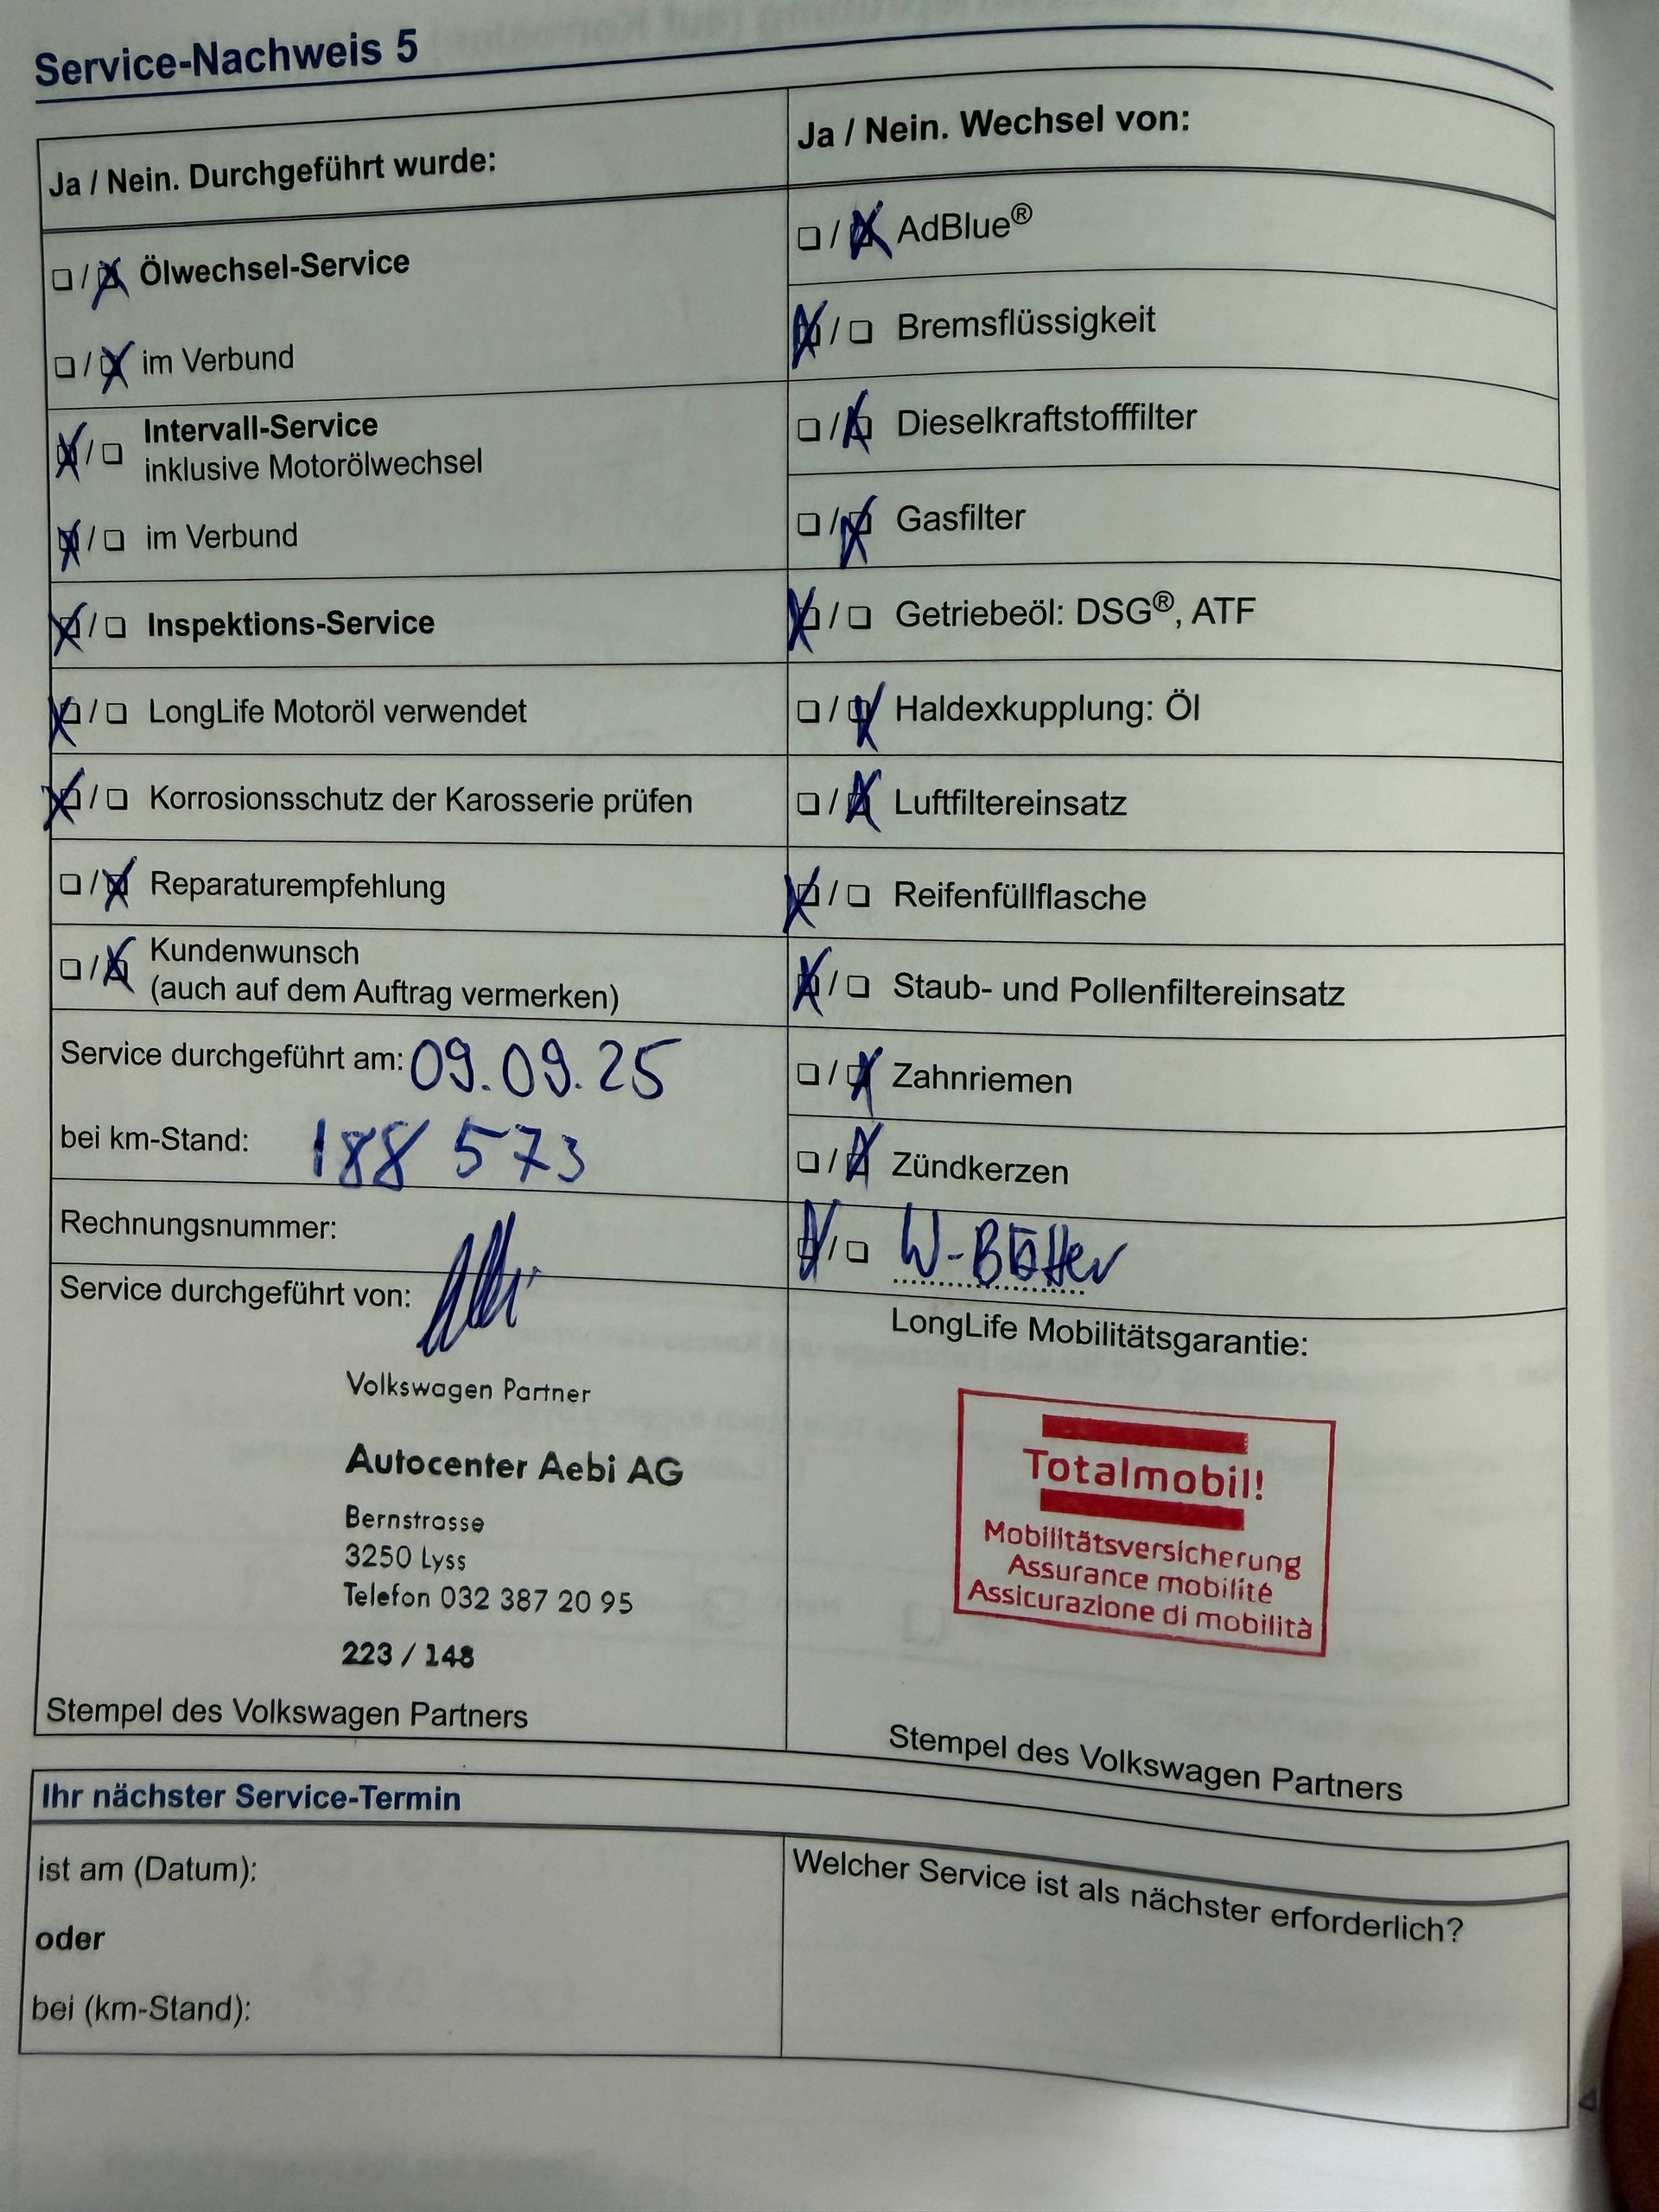 Service-Nachweis 5
Ja / Nein. Durchgeführt wurde:
☐ / ☒ Ölwechsel-Service
☐ / ☒ im Verbund
☒ / ☐ Intervall-Service
inklusive Motorölwechsel
☒ / ☐ im Verbund
☒ / ☐ Inspektions-Service
☒ / ☐ LongLife Motoröl verwendet
☒ / ☐ Korrosionsschutz der Karosserie prüfen
☐ / ☒ Reparaturempfehlung
☐ / ☒ Kundenwunsch
(auch auf dem Auftrag vermerken)
Service durchgeführt am: 09.09.25
bei km-Stand: 188 573
Rechnungsnummer:
Service durchgeführt von:
Volkswagen Partner
Autocenter Aebi AG
Bernstrasse
3250 Lyss
Telefon 032 387 20 95
223 / 148
Stempel des Volkswagen Partners
Ja / Nein. Wechsel von:
☐ / ☒ AdBlue®
☒ / ☐ Bremsflüssigkeit
☐ / ☒ Dieselkraftstofffilter
☐ / ☒ Gasfilter
☒ / ☐ Getriebeöl: DSG®, ATF
☐ / ☒ Haldexkupplung: Öl
☐ / ☒ Luftfiltereinsatz
☒ / ☐ Reifenfüllflasche
☒ / ☐ Staub- und Pollenfiltereinsatz
☐ / ☒ Zahnriemen
☐ / ☒ Zündkerzen
☒ / ☐
LongLife Mobilitätsgarantie:
Totalmobil!
Mobilitätsversicherung
Assurance mobilité
Assicurazione di mobilità
Stempel des Volkswagen Partners
Ihr nächster Service-Termin
ist am (Datum):
oder
bei (km-Stand):
Welcher Service ist als nächster erforderlich?